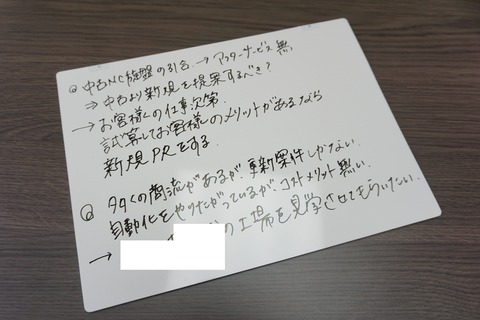 ◎中古NC旋盤の引合。→アフターサービス無
⇒中古より新規を提案するべき?
→お客様の仕事次第。
試算してお客様のメリットがあるなら
新規PRをする。
◎多くの商流があるが、更新案件しかない。
自動化をやりたがっているが、コストメリット無い。
→ の工場を見学させてもらいたい。